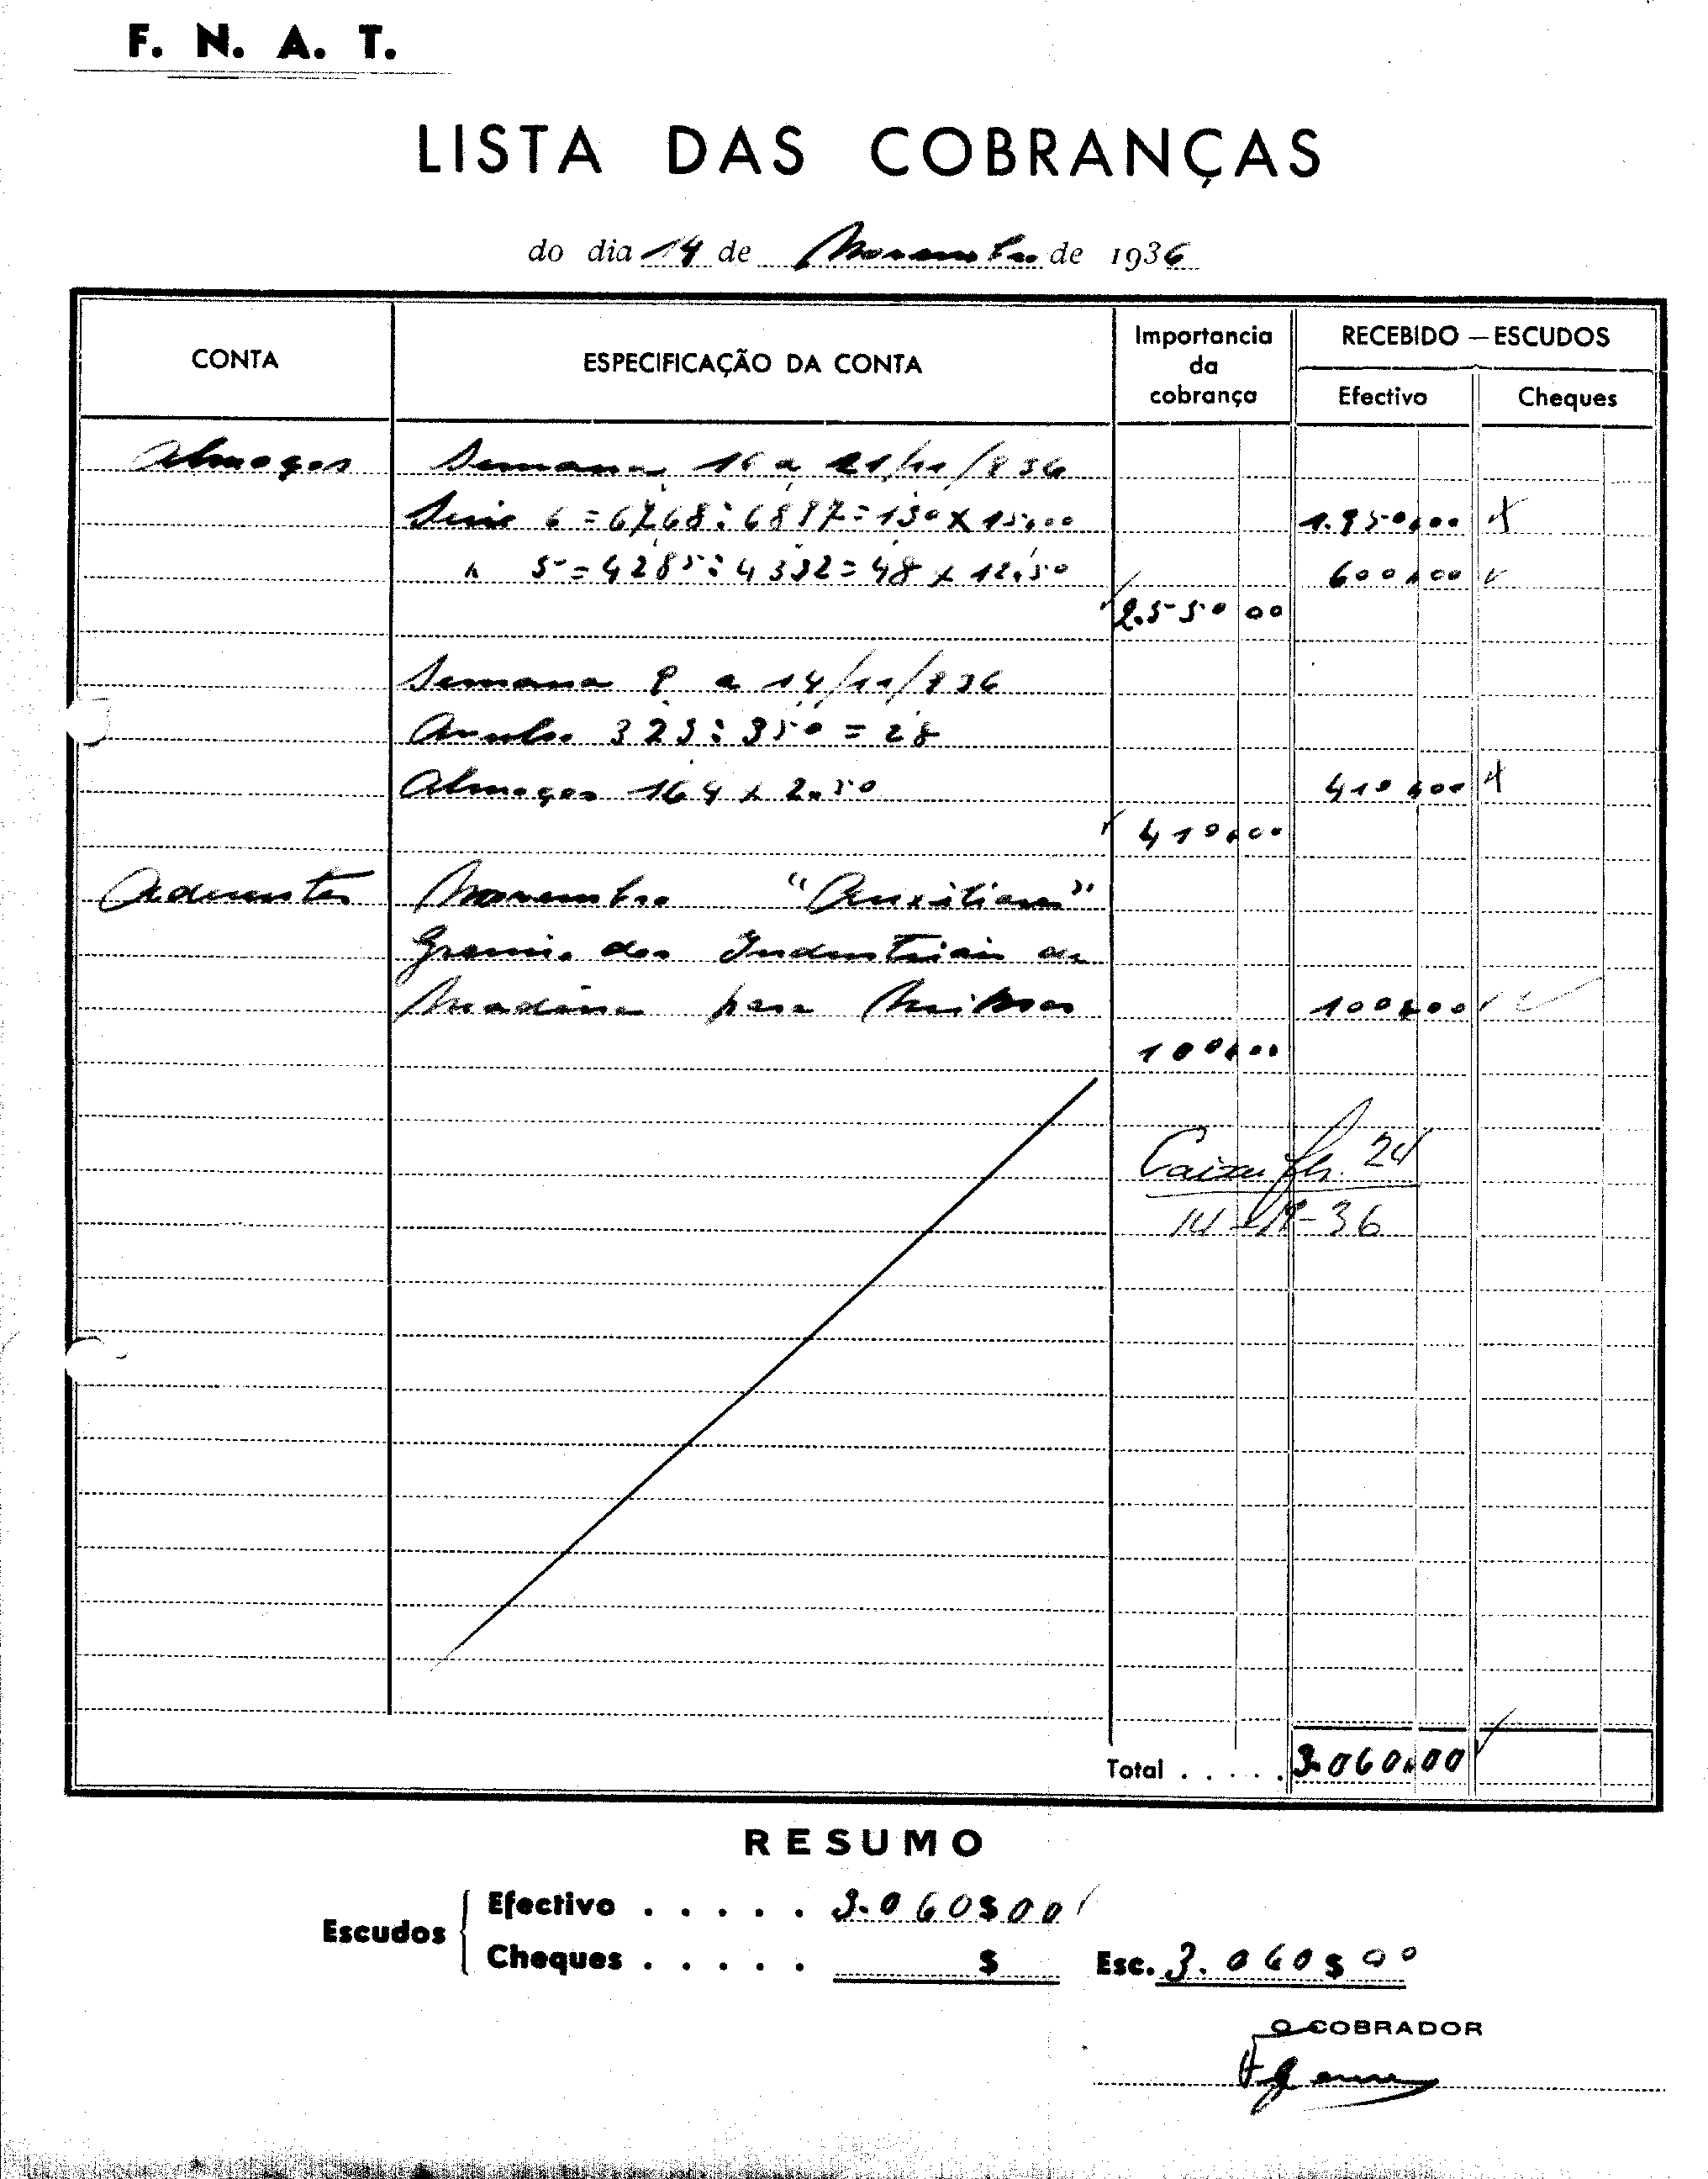 F. N. A. T.
LISTA DAS COBRANÇAS
do dia 14 de Novembro de 1936
CONTA
ESPECIFICAÇÃO DA CONTA
Importancia da cobrança
RECEBIDO — ESCUDOS
Efectivo
Cheques
Almoços Semana 16 a 21/11/936
Serie 6 = 6768 : 6897 = 130 x 15$00 1.950$00
" 5 = 4285 : 4332 = 48 x 12$50 600$00
2.550 00
Semana 9 a 14/11/936
Avulso 323 : 350 = 28
Almoços 164 x 2$50 410$00
410$00
Aderentes Novembro "Auxiliares"
Gremio dos Industriais de
100$00
100$00
Caixa fls. 24
Total . . . . . 3.060$00
RESUMO
Escudos
Efectivo . . . . . 3.060$00
Cheques . . . . . $ Esc. 3.060$00
O COBRADOR